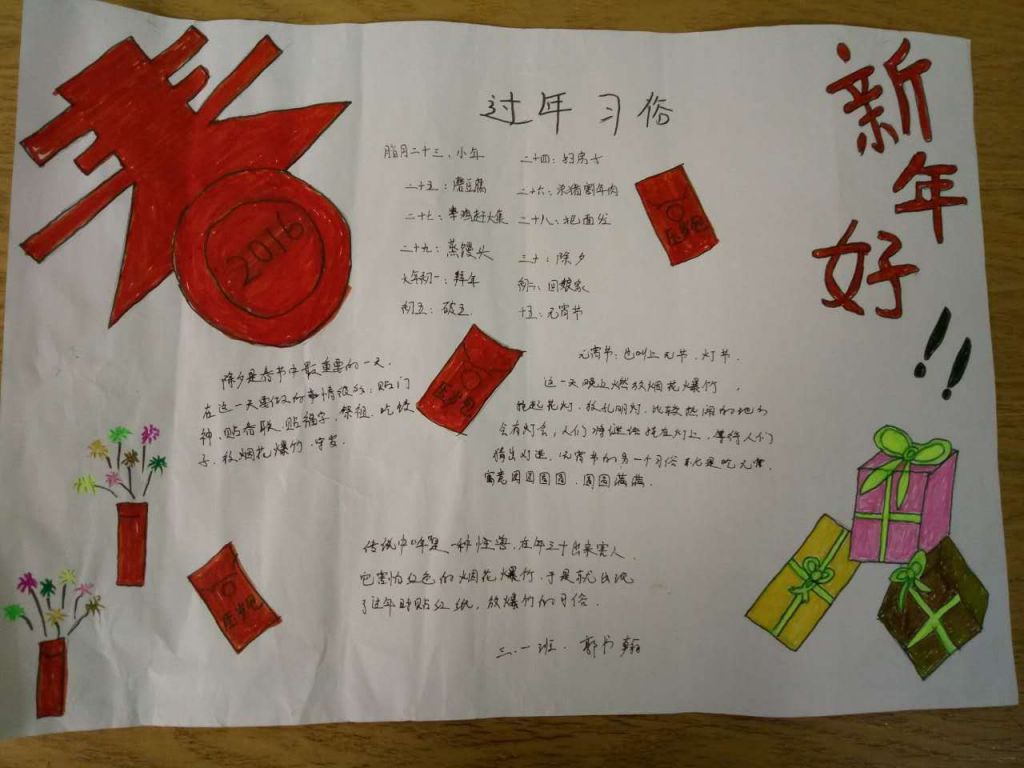 春
2016
新年好!!
过年习俗
腊月二十三、小年 二十四:扫房子
二十五:磨豆腐 二十六:杀猪割年肉
二十七:宰鸡赶大集 二十八:把面发
二十九:蒸馒头 三十:除夕
大年初一:拜年 初二:回娘家
初五:破五 十五:元宵节
压岁包
压岁包
压岁包
除夕是春节中最重要的一天.
在这一天要做的事情很多:贴门
神、贴春联、贴福字、祭祖、吃饺
子、放烟花爆竹、守岁.
元宵节:也叫上元节、灯节.
这一天晚上燃放烟花爆竹,
挂起花灯、放孔明灯、比较热闹的地方
会有灯会,人们将谜语挂在灯上,等待人们
猜出灯谜.元宵节的另一个习俗就是吃元宵.
寓意团团圆圆、圆圆满满.
传说中年是一种怪兽.在年三十出来害人.
它害怕红色的烟花爆竹.于是就出现
了过年时贴红纸,放爆竹的习俗.
三.一班.郭书翰